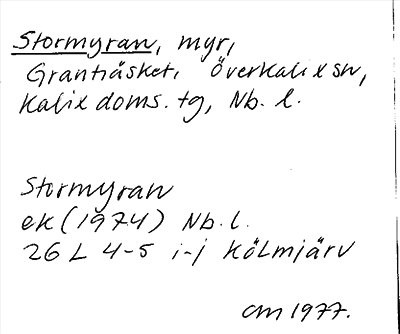 Stormyran, myr,
Granträsket, Överkalix sn,
Kalix doms. tg, Nb. l.
Stormyran
ek (1974) Nb. l.
26 L 4-5 i-j Kölmjärv
CM 1977.